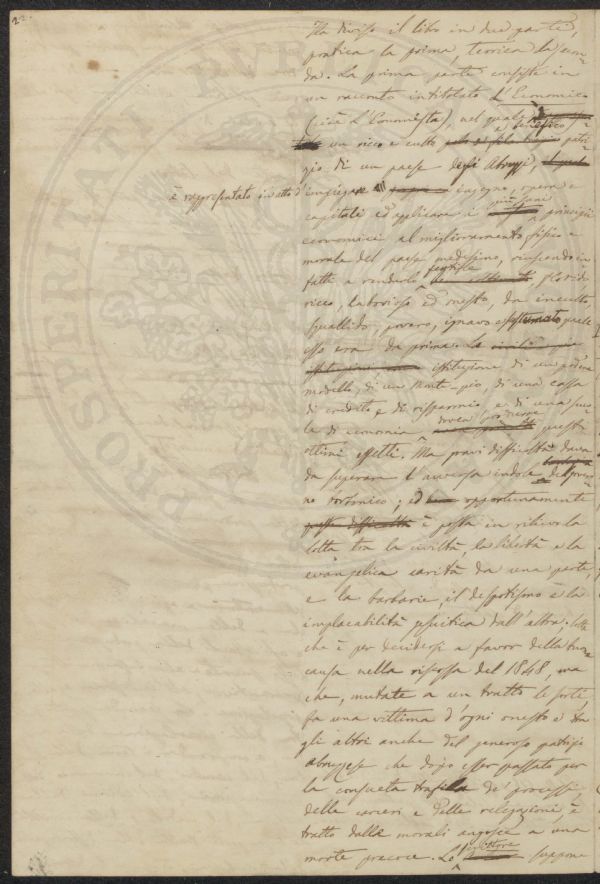 22.
Ha diviso il libro in due parti,
pratica la prima, teorica la secon=
da. La prima parte consiste in
un racconto intitolato L'Economico
(cioè L'Economista), nel quale
e benefico
un ricco e culto patri=
zio di un paese degli Abruzzi,
è rappresentato in atto d'impiegare ingegno, opera e
capitali ed applicare i principii
economici al miglioramento fisico e
morale del paese medesimo, riuscendo in
fatti a renderlo fertile, florido
ricco, laborioso ed onesto, da incolto
squallido, povero, ignavo e quale
esso era da prima. La
istituzione di un podere
modello, di un Monte-pio, di una cassa
di credito e di risparmio, e di una scuo=
la di economia dovea produrre questi
ottimi effetti. Ma gravi difficoltà dava
da superare l'avversa indole del gover=
no borbonico; ed opportunamente
è posta in rilievo la
lotta tra la civiltà, la libertà e la
evangelica carità da una parte,
e la barbarie, il despotismo e la
implacabilità gesuitica dall'altra; lotta
che è per decidersi a favor della buona
causa nella riscossa del 1848, ma
che, mutate a un tratto le sorti
fa una vittima d'ogni onesto e tra
gli altri anche del generoso patrizio
abruzzese che dopo esser passato per
la consueta trafila de' processi,
delle carceri e delle relegazioni, è
tratto dalle morali angosce a una
morte precoce. Lo scrittore suppone
PROSPERITATI PVBLI